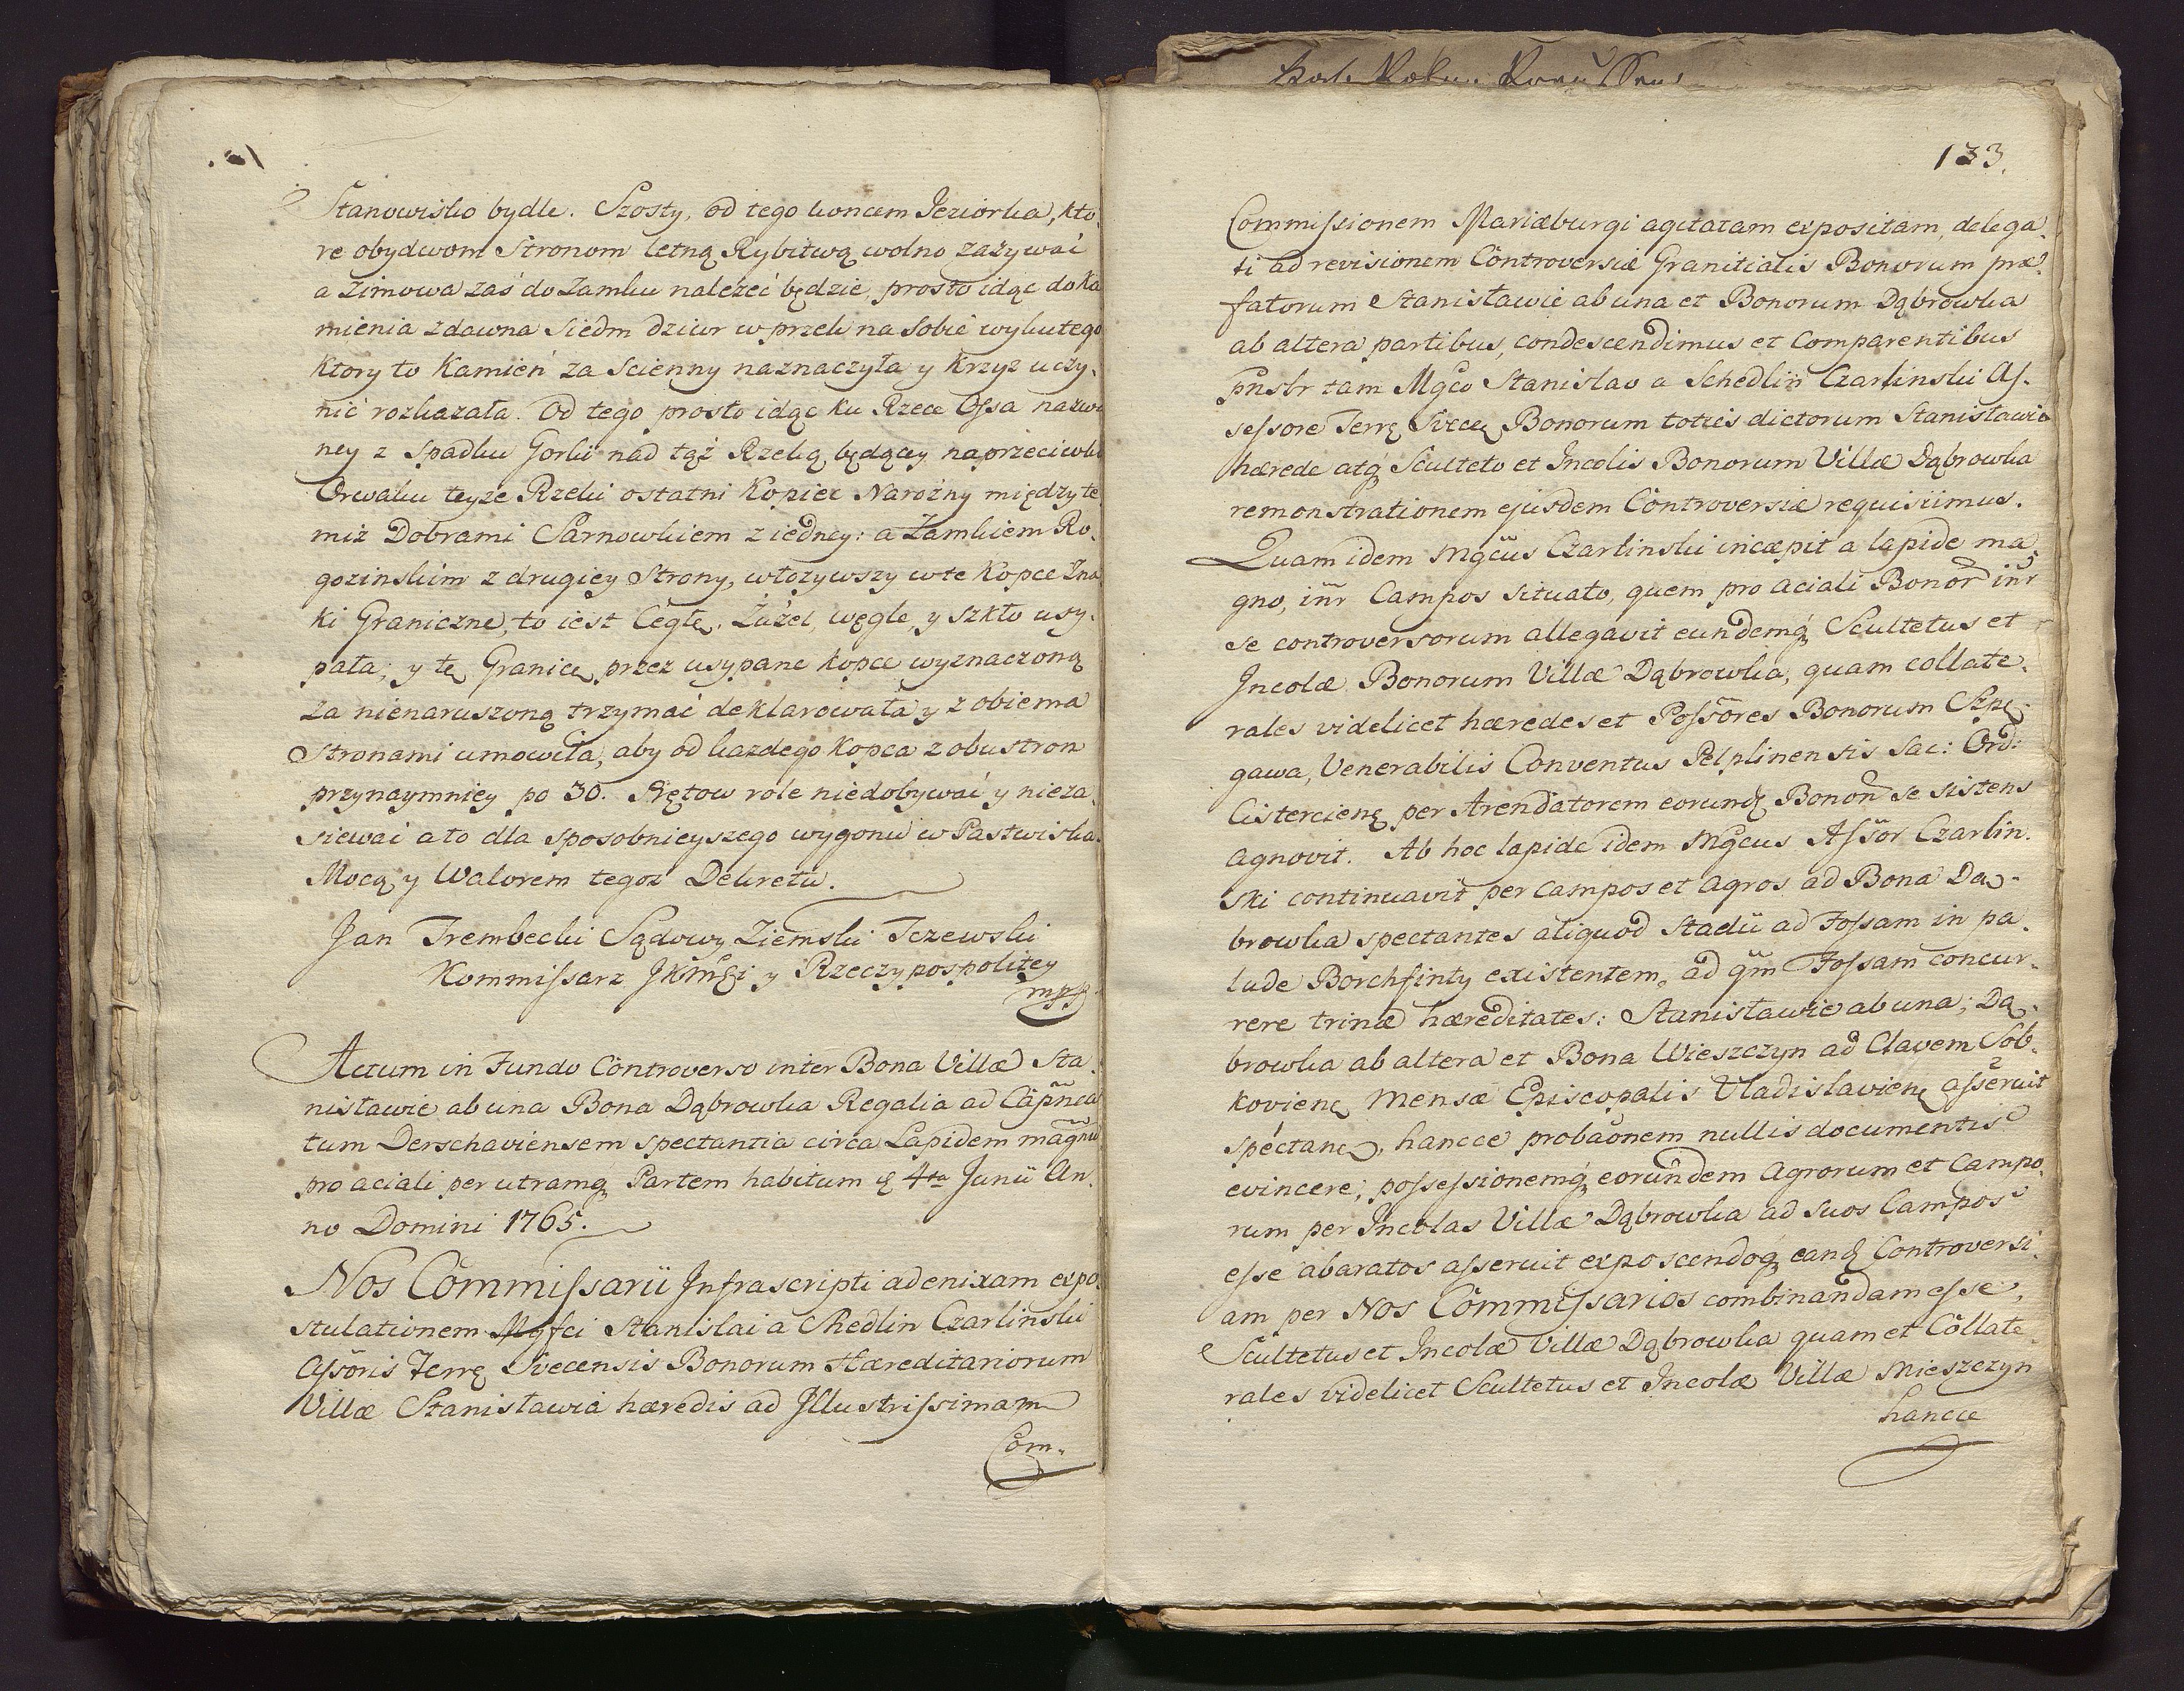 Stanowisko bydle. Szosty, od tego koncem Jeziorka, kto-
re obydwom Stronom letną Rybitwą wolno zażywać
a Zimowa zaś do Zamku należeć będzie, prosto idąc do Ka
mienia zdawna siedm dziur w przek na sobie wykutego
Ktory to Kamień za Scienny naznaczyła y Krzyz uczy-
nić rozkazała. Od tego prosto idąc ku Rzece Ossa nazwa
ney z Spadku Gorki nad tąż Rzeką będącey naprzeciwko
Orwaku teyze Rzeki ostatni Kopiec Narożny między te
miż Dobrami Sarnowkiem z iedney: a Zamkiem Ro-
gozinskim z drugiey Strony, włożywszy w te Kopce Zna
ki Graniczne, to iest Cegłę, Żużel, węgle, y szkło usy-
pała; y tę Granicę przez usypane kopce wyznaczoną
za nienaruszoną trzymać deklarowała y z obiema
Stronami umowiła, aby od kazdego Kopca z obu stron
przynaymniey po 30. Prętow role niedobywać y nieza-
siewać a to dla sposobnieyszego wygonu w Pastwiska.
Mocą y Walorem tegoż Dekretu.
Jan Trembecki Sądowy Ziemski Tczewski
Kommissarz JKMci y Rzeczypospolitey
mpp
Actum in Fundo Controverso inter Bona Villæ Sta-
nisławie ab una Bona Dąbrowka Regalia ad Capñea
tum Derschaviensem spectantia circa Lapidem magnu
pro aciali per utramq Partem habitum d 4ta Junii An-
no Domini 1765.
Nos Commissarii Infrascripti ad enixam expo
stulationem Mgfci Stanislai a Schedlin Czarlinski
Assoris Terrę Svecensis Bonorum Hæreditariorum
Villæ Stanisławia hæredis ad Illustrissimam
Com-
133.
Commissionem Mariæburgi agitatam expositam, delega-
ti ad revisionem Controversiæ Granitialis Bonorum præ-
fatorum Stanisławie ab una et Bonorum Dąbrowka
ab altera partibus, condescendimus et Comparentibus
pnsbr tam Mgco Stanislao a Schedlin Czarlinski As-
sessore Terrę Svecę Bonorum toties dictorum Stanisławia
hærede atq Sculteto et Incolis Bonorum Villæ Dąbrowka
remonstrationem ejusdem Controversiæ requisiimus.
Quam idem Mgcus Czarlinski incæpit a lapide ma-
gno, inr Campos situato, quem pro aciali Bonor inr
se controversorum allegavit eundemq Scultetus et
Incolæ Bonorum Villæ Dąbrowka, quam collate-
rales videlicet hæredes et Possores Bonorum Szne-
gawa, Venerabilis Conventus Pelplinensis Sac: Ord:
Cistercienę per Arendatorem eorund Bonon se sistens
agnovit. Ab hoc lapide idem Mgcus Assor Czarlin-
ski continuavit per campos et agros ad Bona Dą-
browka spectantes aliquod Stadii ad Fossam in pa-
lude Borchfinty existentem, ad qm Fossam concur-
rere trinæ hæreditates: Stanisławie ab una; Dą-
browka ab altera et Bona Wieszczyn ad Clavem Sob-
kovienę Mensæ Episcopalis Vladislavienę asseruit
spectane, hancce probaonem nullis documentis
evincere; possessionemq eorundem Agrorum et Campo-
rum per Incolas Villæ Dąbrowka ad suos Campos
esse abaratos asseruit exposcendoq eand Controversi-
am per Nos Commissarios combinandam esse,
Scultetus et Incolæ Villæ Dąbrowka quam et Collate-
rales videlicet Scultetus et Incolæ Villæ Mieszczyn
hancce